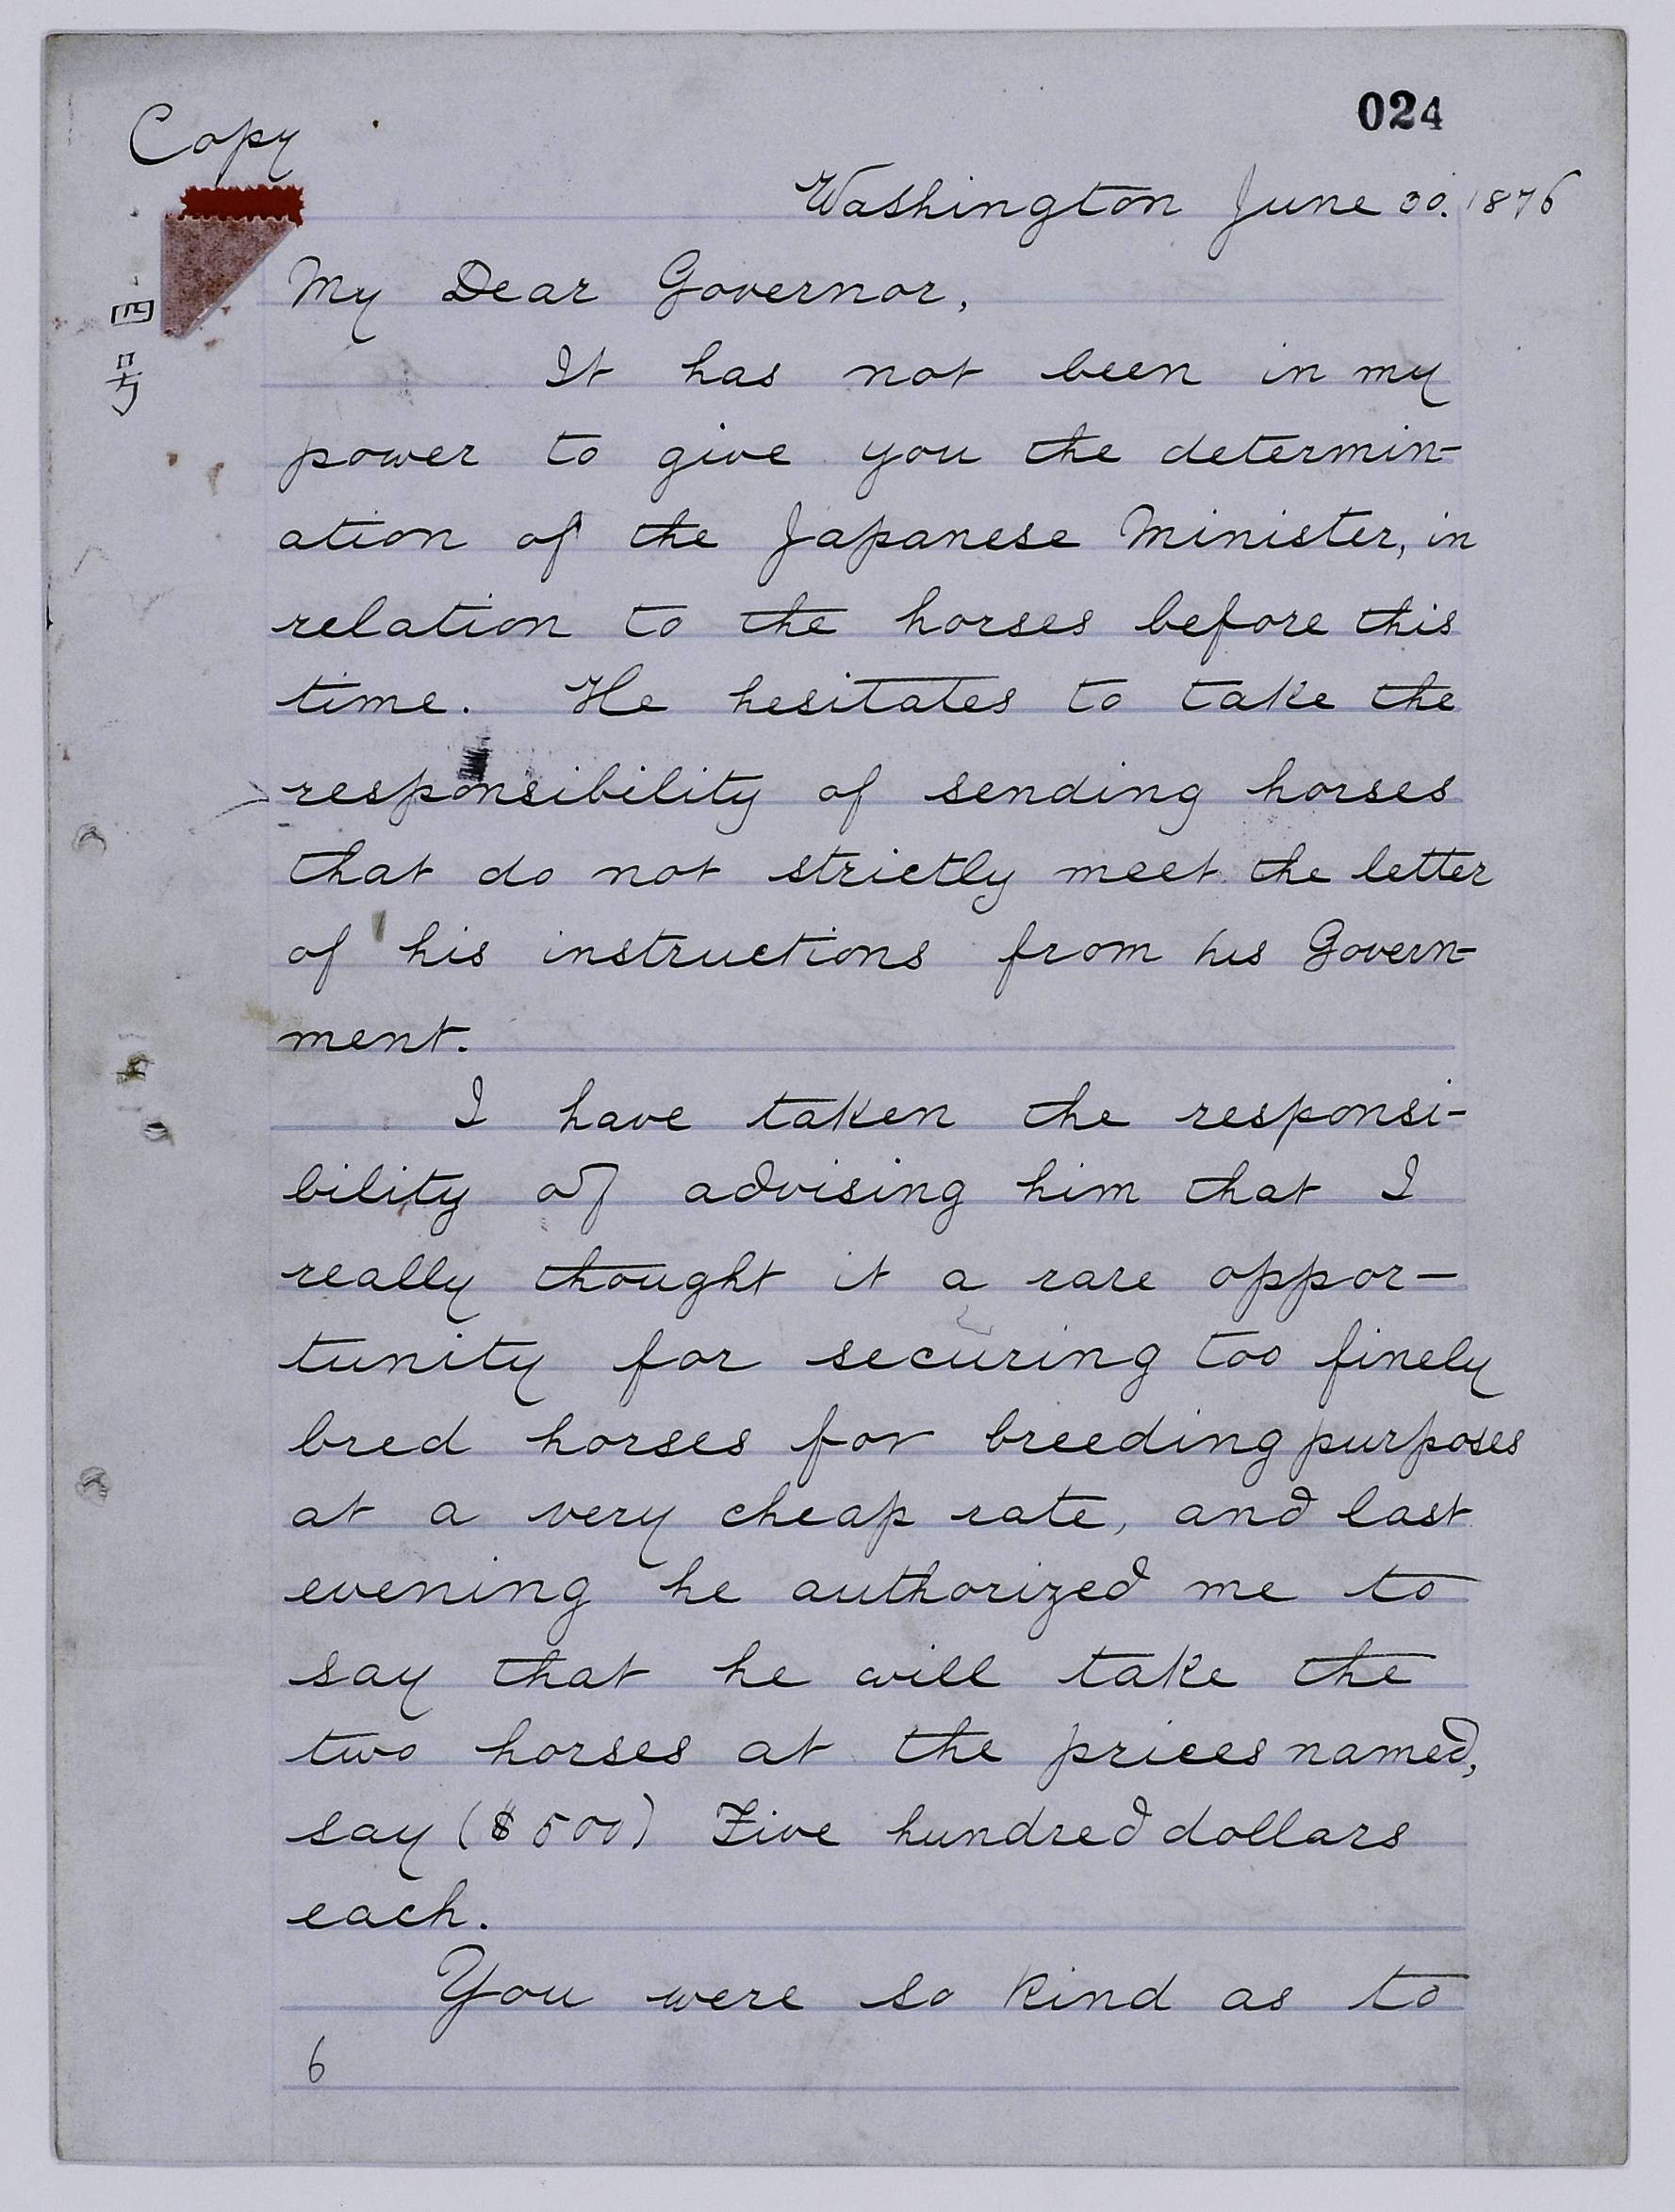 024
Copy
Washington June 30. 1876
四号
My Dear Governor,
It has not been in my
power to give you the determin-
ation of the Japanese Minister, in
relation to the horses before this
time. He hesitates to take the
responsibility of sending horses
that do not strictly meet the letter
of his instructions from his Govern-
ment.
I have taken the responsi-
bility of advising him that I
really thought it a rare oppor-
tunity for securing too finely
bred horses for breeding purposes
at a very cheap rate, and last
evening he authorized me to
say that he will take the
two horses at the prices named,
say ($500) Five hundred dollars
each.
You were so kind as to
6